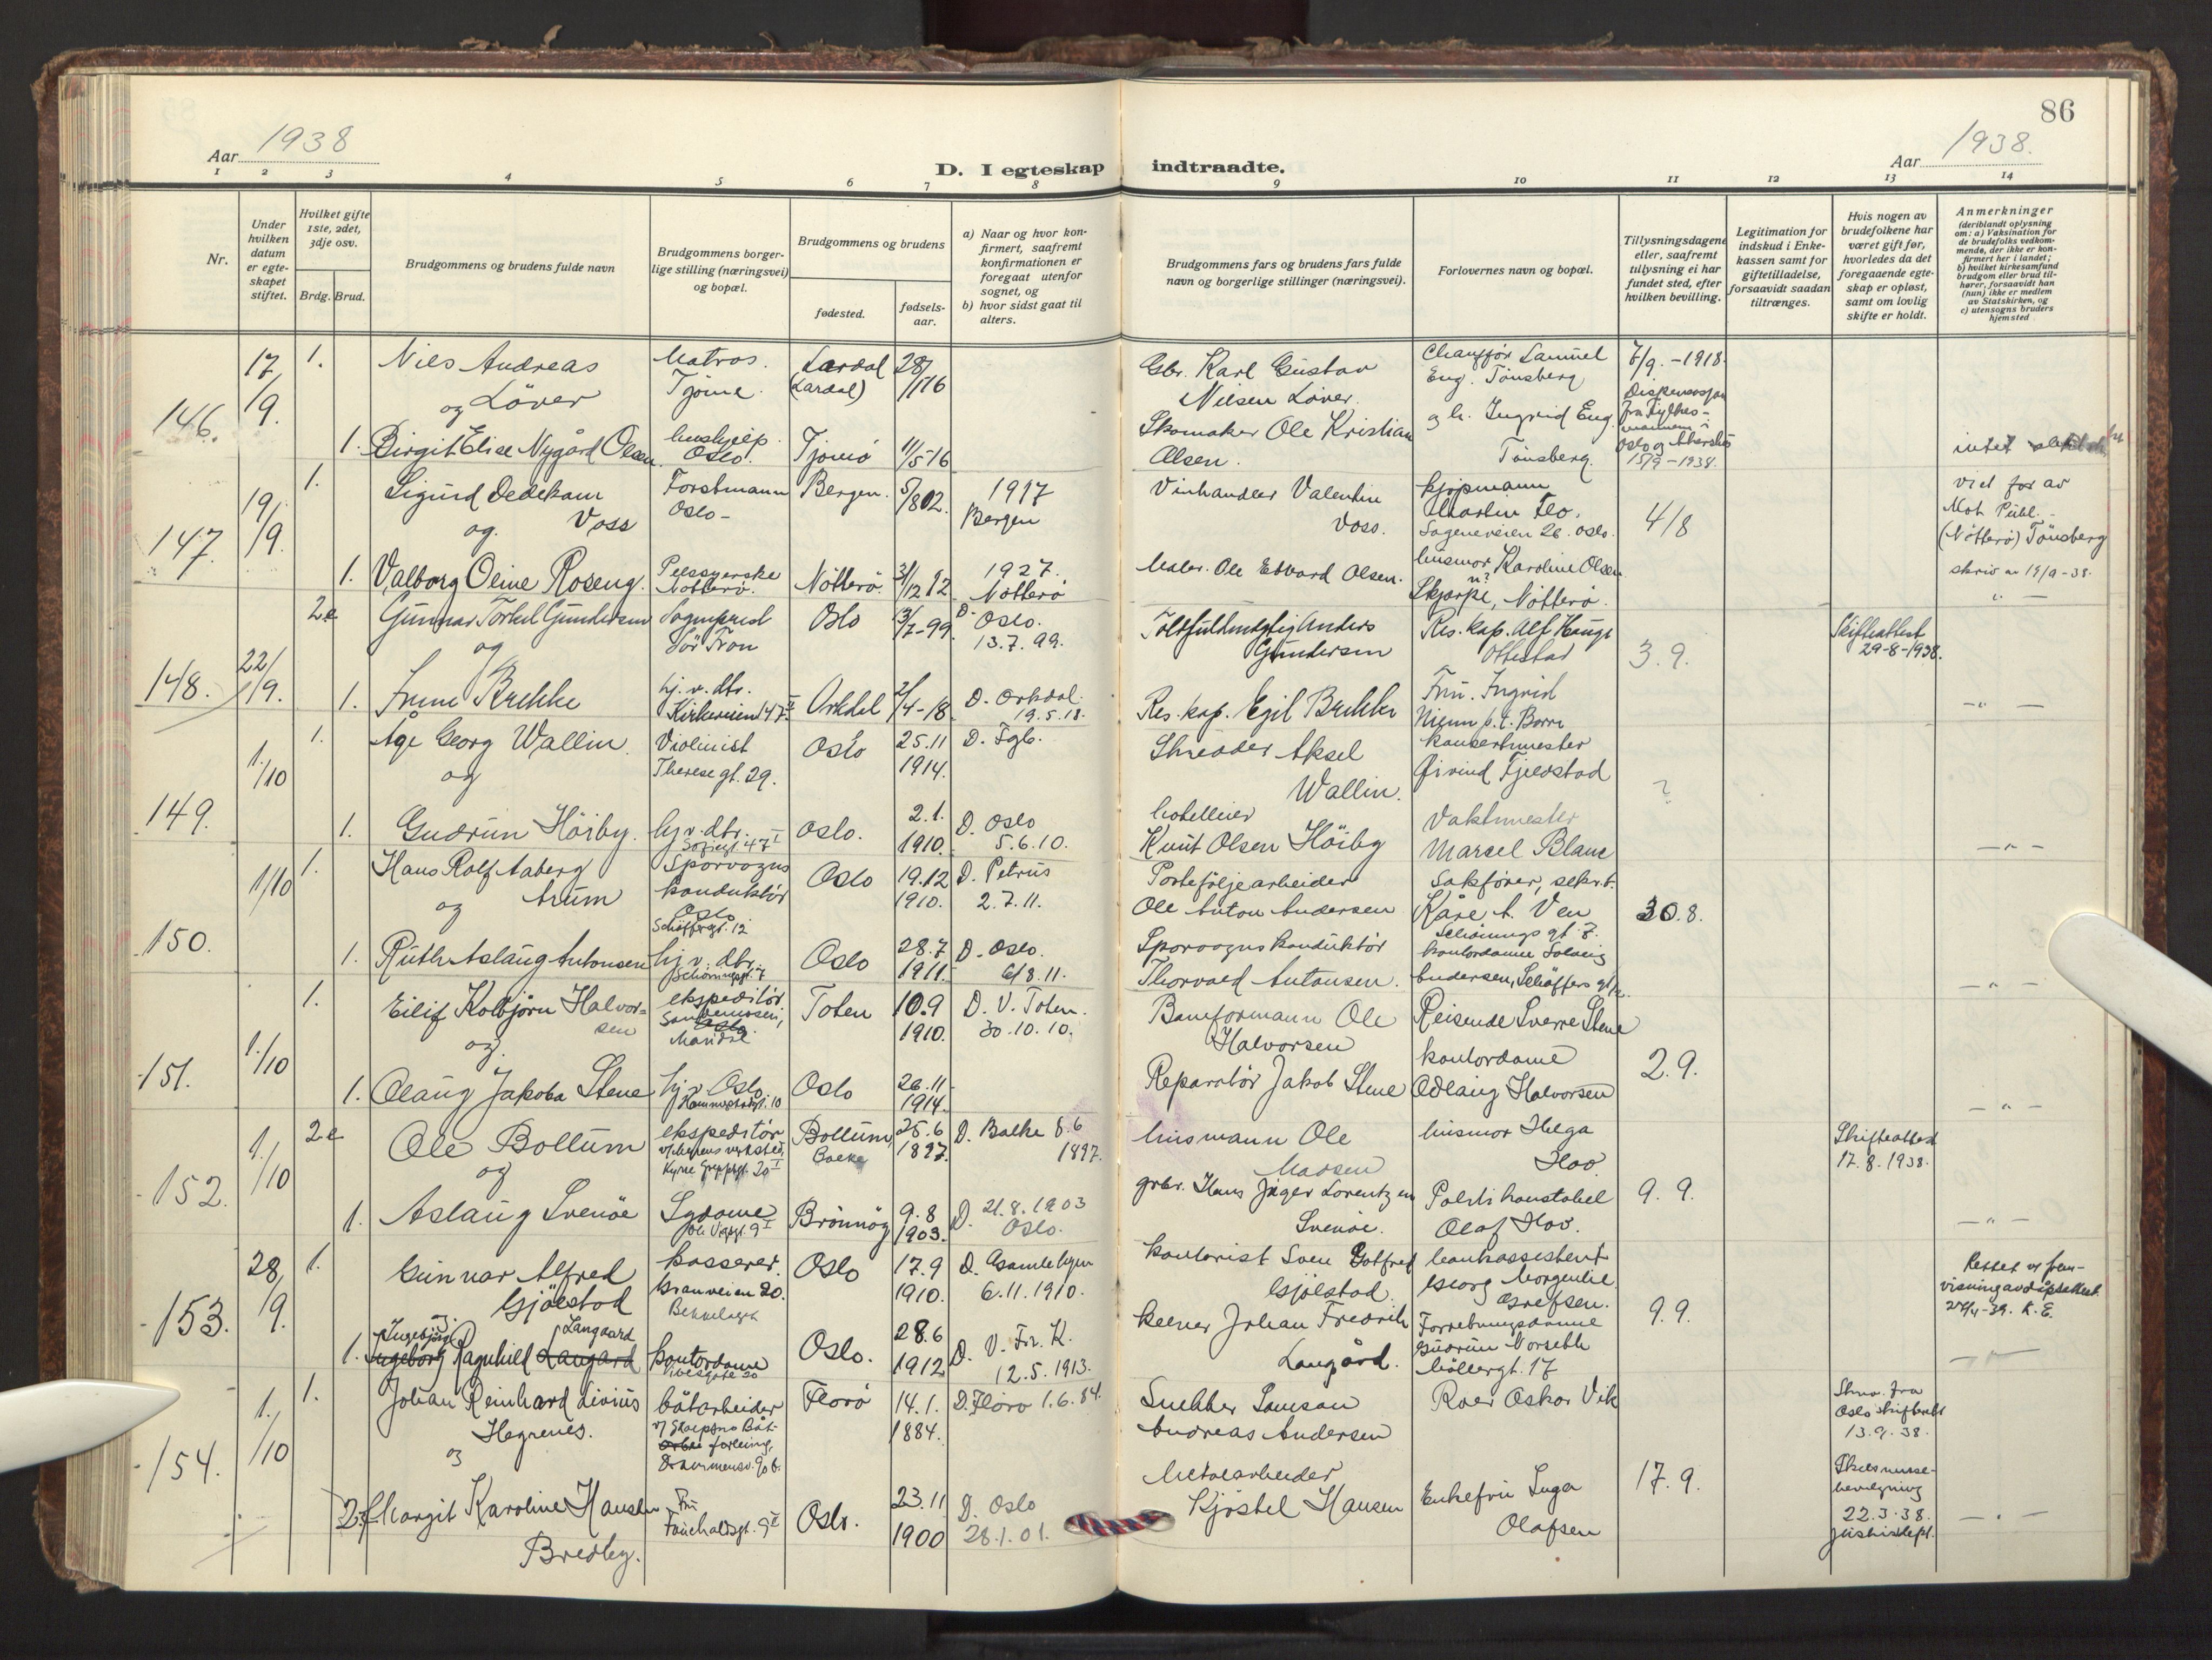 86
Aar 1938
D. I egteskap indtraadte.
Aar 1938.
1 2 3 4 5 6 7 8 9 10 11 12 13 14
Nr.
Under
hvilken
datum
er egte-
skapet
stiftet.
Hvilket gifte
1ste, 2det,
3dje osv.
Brdg. Brud.
Brudgommens og brudens fulde navn
Brudgommens borger-
lige stilling (næringsvei)
og bopæl.
Brudgommens og brudens
fødested.
fødsels-
aar.
a) Naar og hvor kon-
firmert, saafremt
konfirmationen er
foregaat utenfor
sognet, og
b) hvor sidst gaat til
alters.
Brudgommens fars og brudens fars fulde
navn og borgerlige stillinger (næringsvei).
Forlovernes navn og bopæl.
Tillysningsdagene
eller, saafremt
tillysning ei har
fundet sted, efter
hvilken bevilling.
Legitimation for
indskud i Enke-
kassen samt for
giftetilladelse,
forsaavidt saadan
tiltrænges.
Hvis nogen av
brudefolkene har
været gift før,
hvorledes da det
foregaaende egte-
skap er opløst,
samt om lovlig
skifte er holdt.
Anmerkninger
(deriblandt oplysning
om: a) Vaksination for
de brudefolks vedkom-
mende, der ikke er kon-
firmert her i landet;
b) hvilket kirkesamfund
brudgom eller brud til-
hører, forsaavidt han
(hun) ikke er medlem
av Statskirken, og
c) utensogns bruders
hjemsted
146.
17/9.
1.
Niels Andreas
Löver
og
Matros.
Tjöme.
Lardal
(Lardal)
28/1 16
Gbr. Karl Gustav
Nilsen Löver.
Chauffør Samuel
Eng. Tönsberg
7/9.-1918.
Dispensasjon
fra Fylkes-
mannen i
Oslo og Akershus
15/9-1938.
1. Birgit Elise Nygård Olsen
hushjelp
Oslo.
Tjömö
11/5-16
Skomaker Ole Kristian
Olsen.
og h. Ingrid Eng.
Tönsberg.
intet
147.
19/9.
1.
Sigurd Dedekam
Voss
og
Forstmann
Oslo-
Bergen.
5/8 02.
1917
Bergen
Vinhandler Valentin
Voss.
kjøpmann
Martin Flo.
Sageneveien 26. Oslo.
4/8
viet før av
Not. Publ.
(Nötterö) Tönsberg
skriv av 19/9-38.
1. Valborg Oline Roseng.
Pelssyerske
Nötterö.
Nötterö.
31/12 12
1927.
Nötterö
Maler. Ole Edvard Olsen.
husmor Karoline Olsen
Skjerpe, Nötterö.
148.
22/9.
2e
Gunnar Torkel Gundersen
og
Sogneprest
Sör Fron
Oslo
13/7-99.
D. Oslo.
13.7.99.
Tollfuldmegtig Anders
Gundersen
Res. kap. Alf Hauge
Ottestad
3.9.
Skifteattest
29-8-1938.
1. Brekke
hj. v. dtr.
Kirkeveien 147 II
Orkdal
2/4-18
D. Orkdal.
19.5.18.
Res. kap. Egil Brekke
Fru. Ingrid
p.t. Borre
- " -
149.
1./10
1.
Åge Georg Wallin.
og
Violinist
Therese gt. 29.
Oslo
25.11
1914.
D. Fgb.
Skredder Aksel
Wallin.
konsertmester
Öivind Fjeldstad
?
1. Gudrun Höiby.
hj. v. dtr.
Sofiegt. 47 I
Oslo.
2.1.
1910.
D. Oslo
5.6.10.
hotelleier
Knut Olsen Höiby
Vaktmester
Marcel Blanc
- " -
150.
1/10
1.
Hans Rolf Aaberg
Arum
og
Sporvogns
konduktör
Oslo
Schöffergt. 12
Oslo
19.12
1910.
D. Petrus
2.7.11.
Porteföljearbeider
Ole Anton Andersen
Sakförer, sekr.
Kåre A. Ven
Schönings gt. 7.
30.8.
1. Ruth Aslaug Antonsen
hj. v. dtr.
Schöningsgt. 7
Oslo
28.7
1911.
D. Oslo.
6/8.11.
Sporvognskonduktör
Thorvald Antonsen.
kontordame Solveig
Andersen, Schöffers gt. 12.
- " -
151.
1./10
1.
Eilif Kolbjörn Halvor-
sen
og.
ekspeditör
Mandal
Toten
10.9
1910.
D. V. Toten.
30.10.10.
Baneformann Ole
Halvorsen
Reisende Sverre Stene
kontordame
Odlaug Halvorsen
2.9.
1. Olaug Jakoba Stene
hj. v. Oslo
Hammerstadsgt. 10
Oslo
26.11
1914.
Reparatör Jakob Stene
- " -
152.
1./10
2e
Ole Bollum
og
ekspeditör
Kyrre Greppsgt. 20 I
Bollum,
Balke
25.6
1897.
D. Balke 8.6
1897.
husmann Ole
Madsen
husmor Helga
Hov.
9.9.
Skifteattest
17.8.1938.
1. Aslaug Svenöe
Sydame
Ole Vigsgt. 9 I
Brönnöy
9.8
1903.
D. 21.8.1903
Oslo.
grbr. Hans Jäger Lorentzen
Svenöe.
Politikonstabel
Olaf Hov.
- " -
153.
28/9.
1.
Gunnar Alfred
Gjölstad
og.
kasserer.
Granveien 20.
Bekkelaget
Oslo
17.9
1910.
D. Gamlebyen
6.11.1910.
kontorist Sven Gotfred
Gjölstad.
bankassistent
Georg Morgenlie
Grefsen.
9.9.
Rettet v/ frem-
visning av dåpsattest
29/4-39. K. E.
Ingebjörg Langaard
1. Ingeborg Ragnhild Langard
kontordame
Oslo.
28.6
1912
D. V. Fr. K.
12.5.1913.
kelner Johan Fredrik
Langård.
Forretningsdame
Gudrun Vorseth
Möllergt. 17
154.
1./10
1.
Johan Reinhard Livius
Hegrenes.
og
båtarbeider
v/ Skarpsno Båt-
forening,
Drammensv. 90 b.
Florö
14.1.
1884.
D. Florö 1.6.84.
Snekker Samson
Andreas Andersen
Roer Oskar Vik
17.9.
Skriv. fra
Oslo skifterett
13.9.38.
2. Margit Karoline Hansen
Bredby.
Fru
Fauchaldsgt. 9 II
Oslo.
23.11
1900
D. Oslo
28.1.01.
Metalarbeider
Kjöstel Hansen
Enkefru Inga
Olafsen
Skilsmisse-
bevilgning
22.3.38.
Justisdept.
- " -